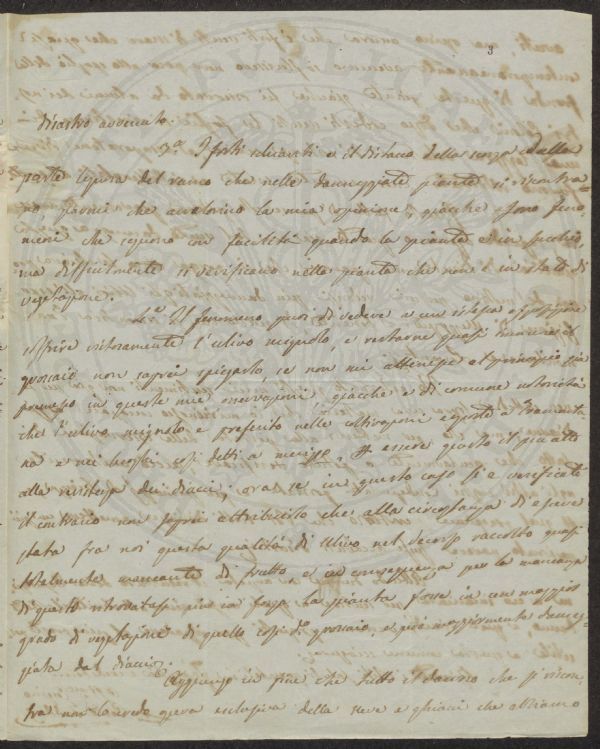 3
disastro avvenuto.
3.º I forti schianti e il distacco della scorza e dalla
parte legnosa del ramo che nelle danneggiate piante si riscontra=
no, parmi che avvalorino la mia opinione, giacchè sono feno=
meni che seguono con facilità quando la pianta è in succhio,
ma difficilmente si verificano nelle piante che non è in stato di
vegetazione.
4.º Il fenomeno poi di vedere a una istessa esposizione
soffrire vistosamente l'ulivo mignolo, e restarne quasi immune il
grossaio non saprei spiegarlo, se non mi attenessi al principio già
premesso in queste mie osservazioni giacchè è di comune notorietà
che l'ulivo mignolo è preferito nelle coltivazioni esposte a tramonta=
na e nei luoghi così detti a essere questo il più atto
alla resistenza dei diacci; ora se in questo caso si è verificato
il contrario non saprei attribuirlo che alla circostanza di essere
stata fra noi questa qualità di Ulivo nel decorso raccolto quasi
totalmente mancante di frutto, e in conseguenza per la mancanza
di questo ritrovatasi più in forza la pianta fosse in un maggior
grado di vegetazione di quello così d.º grossaio, e più maggiormente danneg=
giata dal diaccio.
Aggiungo in fine che tutto il danno che si riscon=
tra non lo credo opera esclusiva della neve e ghiacci che abbiamo